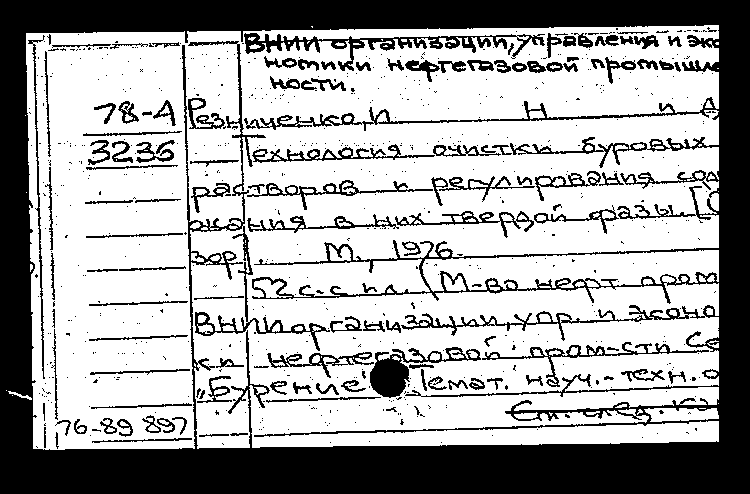 ВНИИ организации, управления и эко
номики нефтегазовой промышле
ности.
78-4 Резниченко, И Н и А
3236 Технология очистки буровых
растворов и регулирования сод
жания в них твердой фазы. [О
зор]. М., 1976.
52 с. с ил. (М-во нефт. пром
ВНИИ организации, упр. и эконо
ки нефтегазовой пром-сти Се
„Бурение" Темат. науч.-техн. о
См. след. ка
76-89 897